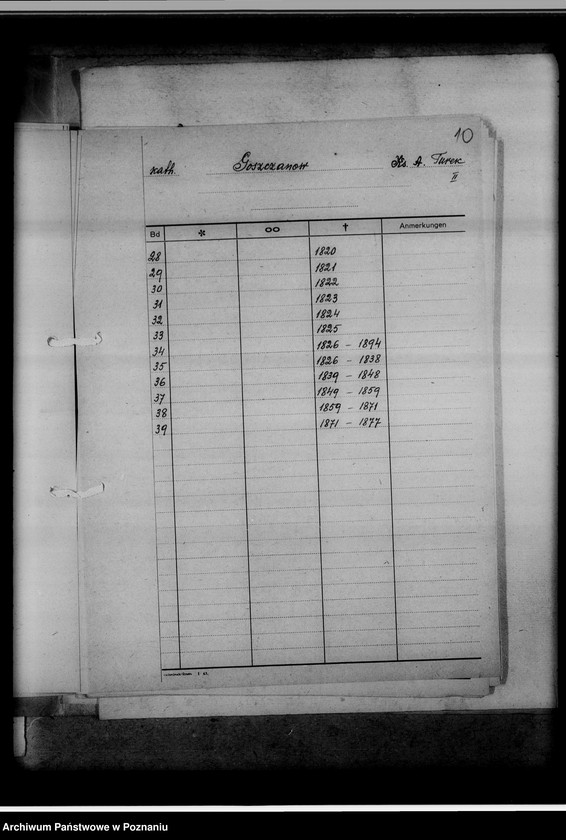 10
kath. Goszczanow Ks. A. Turek
II
Bd * oo † Anmerkungen
28 1820
29 1821
30 1822
31 1823
32 1824
33 1825
34 1826 - 1894
35 1826 - 1838
36 1839 - 1848
37 1849 - 1859
38 1859 - 1871
39 1871 - 1877
Archiwum Państwowe w Poznaniu